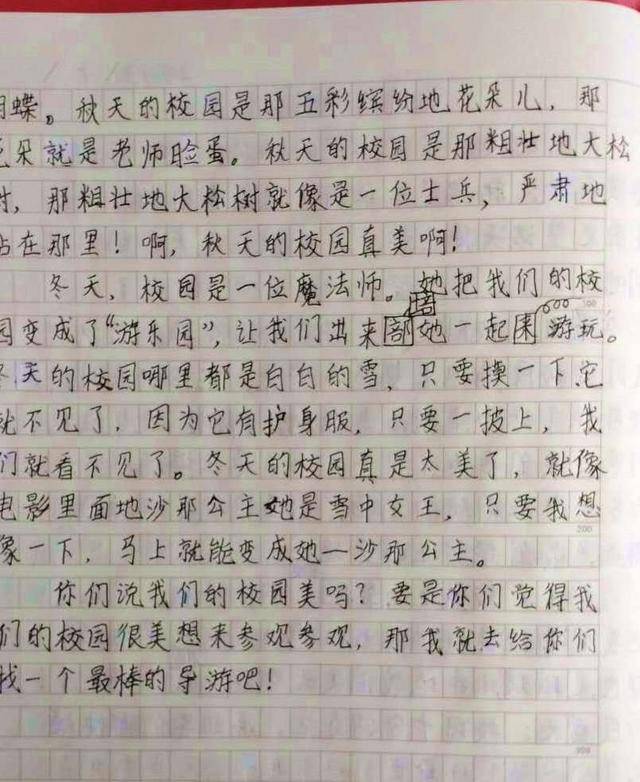 蝶。秋天的校园是那五彩缤纷地花朵儿，那
朵就是老师脸蛋。秋天的校园是那粗壮地大松
树，那粗壮地大松树就像是一位士兵，严肃地
站在那里！啊，秋天的校园真美啊！
冬天，校园是一位魔法师。她把我们的校
园变成了“游乐园”，让我们出来部她一起园游玩。
冬天的校园哪里都是白白的雪，只要摸一下它
就不见了，因为它有护身服，只要一披上，我
们就看不见了。冬天的校园真是太美了，就像
电影里面地沙那公主她是雪中女王，只要我想
像一下，马上就能变成她一沙那公主。
200
你们说我们的校园美吗？要是你们觉得我
们的校园很美想来参观参观，那我就去给你们
找一个最棒的导游吧！